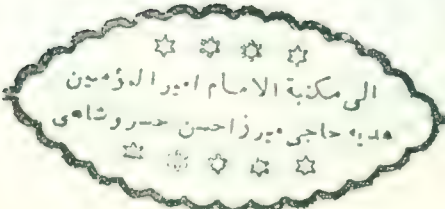 الی مکتبة الامام امیر المؤمنین
هدیه حاجی میرزا حسن خسروشاهی